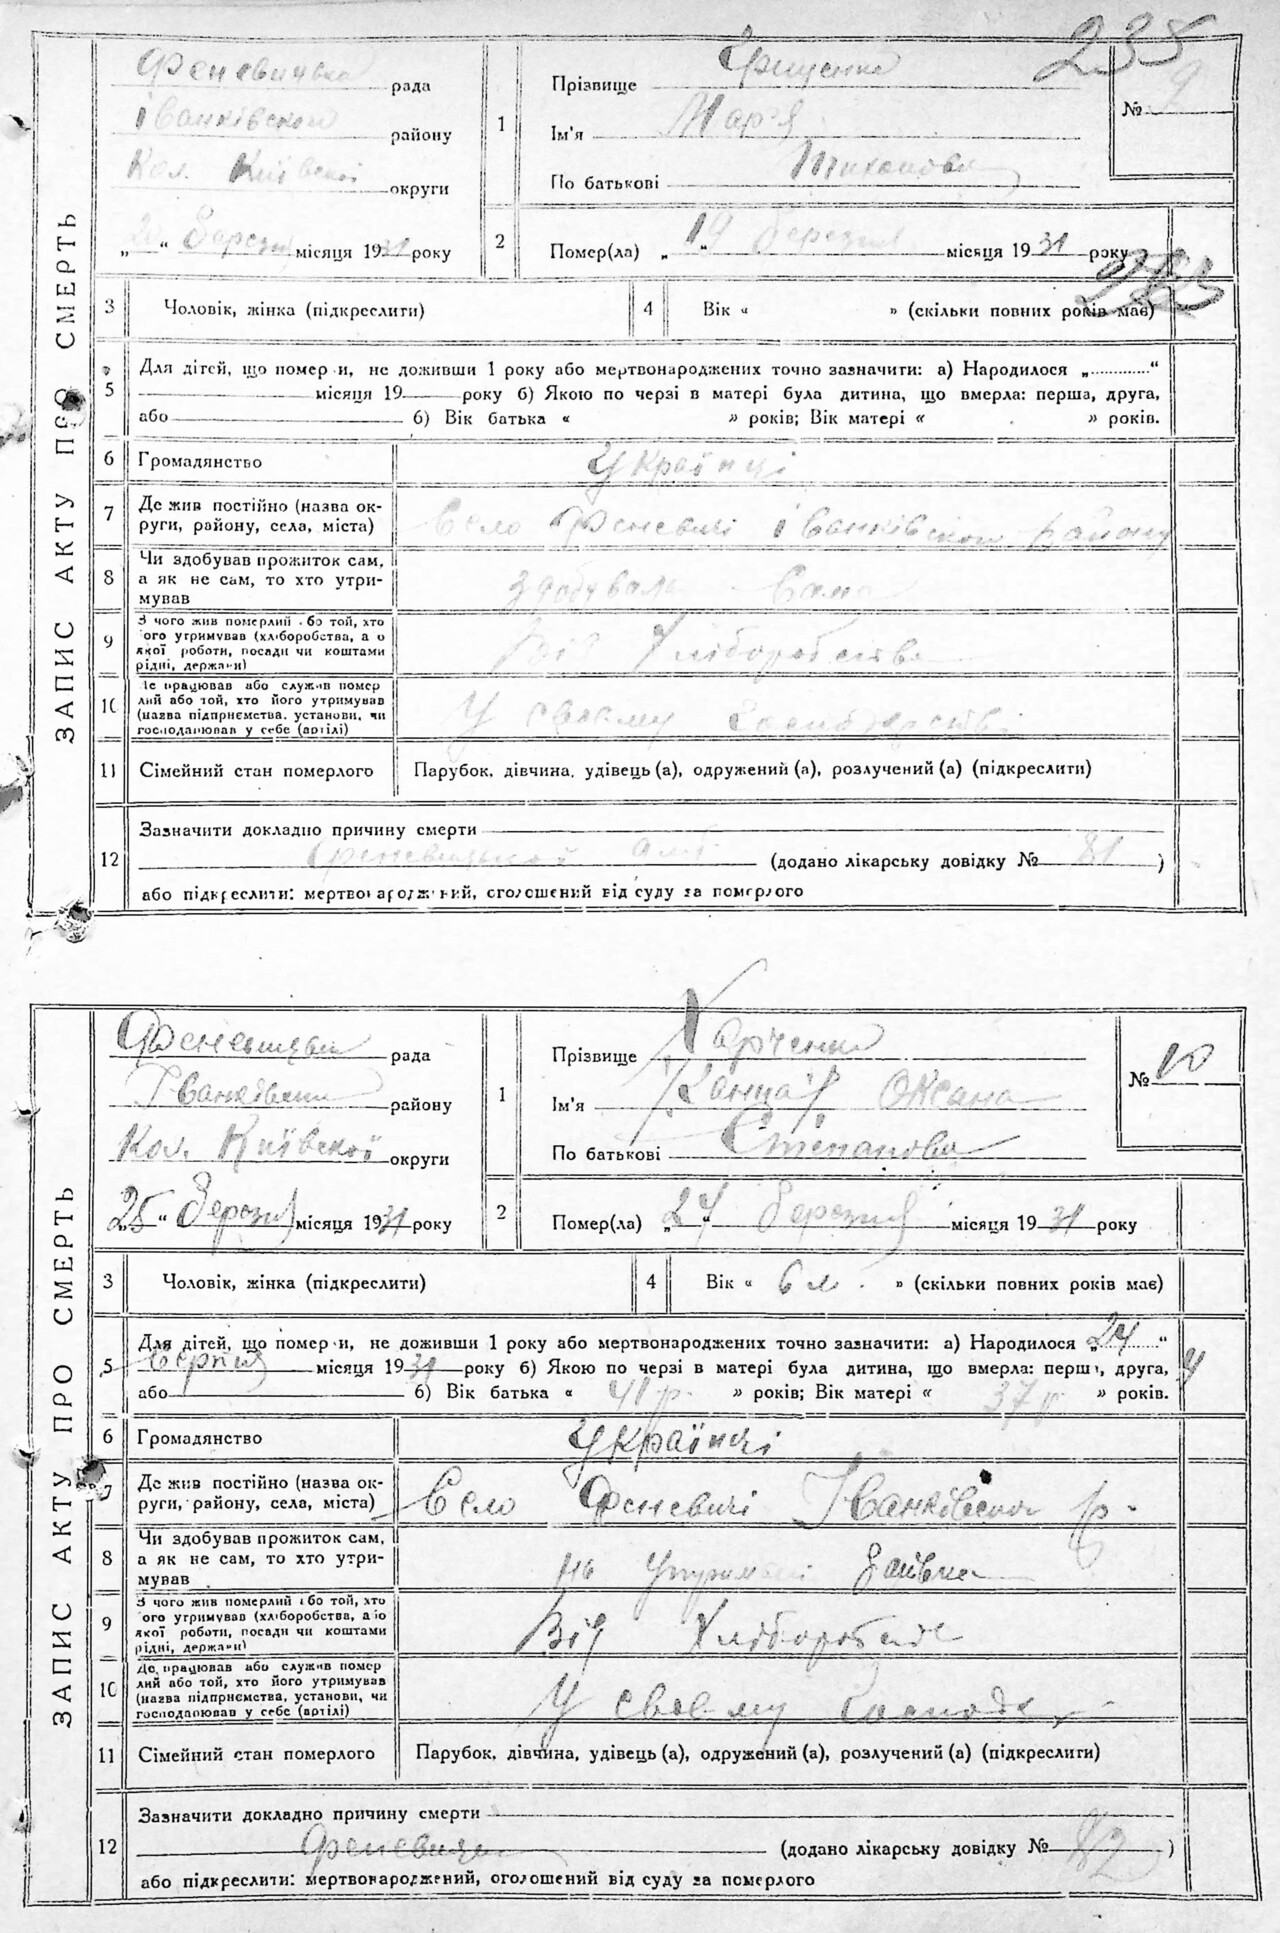 235
ЗАПИС АКТУ ПРО СМЕРТЬ
Феневицька рада
Іванківского району
Кол. Київскої округи
„20“ Березня місяця 1931 року
1
Прізвище Грищенко
Ім'я Мар'я
По батькові Тихонова
№ 9
2
Помер(ла) „19“ Березня місяця 1931 року
263
3
Чоловік, жінка (підкреслити)
4
Вік « » (скільки повних років має)
5
Для дітей, що помер и, не доживши 1 року або мертвонароджених точно зазначити: а) Народилося „ “
місяця 19 року б) Якою по черзі в матері була дитина, що вмерла: перша, друга,
або б) Вік батька « » років; Вік матері « » років.
6
Громадянство
Українці
7
Де жив постійно (назва ок-
руги, району, села, міста)
Село Феневичі Іванківского району
8
Чи здобував прожиток сам,
а як не сам, то хто утри-
мував
здобувала сама
9
З чого жив померлий або той, хто
ого утримував (хліборобства, а о
якої роботи, посади чи коштами
рідні, держави)
Від Хліборобства
10
Де працював або служив помер
лий або той, хто його утримував
(назва підприємства, установи, чи
господарював у себе (артілі)
У своєму
11
Сімейний стан померлого
Парубок, дівчина, удівець (а), одружений (а), розлучений (а) (підкреслити)
12
Зазначити докладно причину смерти
Феневицької (додано лікарську довідку № 81 )
або підкреслити: мертвонароджений, оголошений від суду за померлого
ЗАПИС АКТУ ПРО СМЕРТЬ
рада
Іванківского району
Кол. Київскої округи
„25“ Березня місяця 1931 року
1
Прізвище Харченко
Ім'я Оксана
По батькові Степанова
№ 10
2
Помер(ла) „24“ Березня місяця 1931 року
3
Чоловік, жінка (підкреслити)
4
Вік « 6 м. » (скільки повних років має)
5
Для дітей, що помер и, не доживши 1 року або мертвонароджених точно зазначити: а) Народилося „24“
місяця 19 року б) Якою по черзі в матері була дитина, що вмерла: перша, друга, 4
або б) Вік батька « 41 р. » років; Вік матері « 37 р. » років.
6
Громадянство
Українці
7
Де жив постійно (назва ок-
руги, району, села, міста)
Село Феневичі Іванківского р-
8
Чи здобував прожиток сам,
а як не сам, то хто утри-
мував
на утриманні батька
9
З чого жив померлий або той, хто
ого утримував (хліборобства, а о
якої роботи, посади чи коштами
рідні, держави)
Від Хліборобств
10
Де працював або служив помер
лий або той, хто його утримував
(назва підприємства, установи, чи
господарював у себе (артілі)
У своєму господ.
11
Сімейний стан померлого
Парубок, дівчина, удівець (а), одружений (а), розлучений (а) (підкреслити)
12
Зазначити докладно причину смерти
(додано лікарську довідку № 82 )
або підкреслити: мертвонароджений, оголошений від суду за померлого